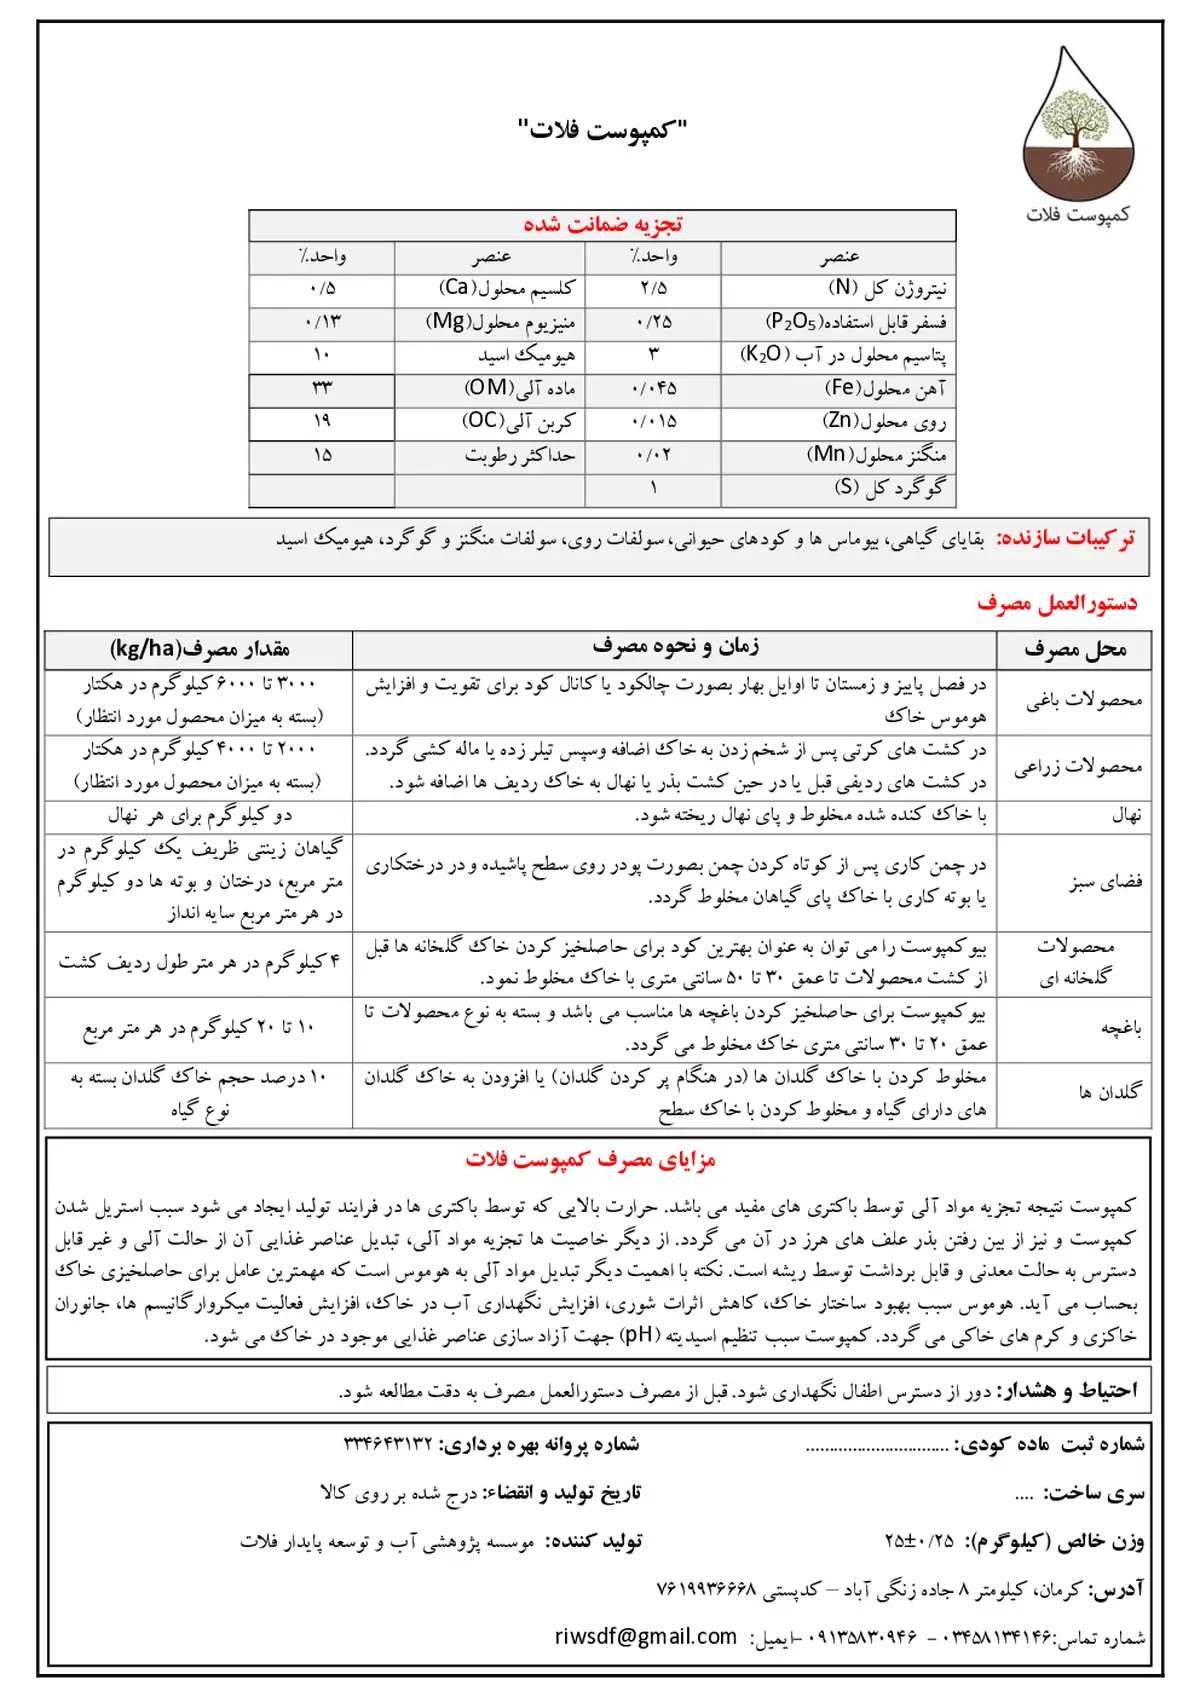 کمپوست فلات
"کمپوست فلات"
تجزیه ضمانت شده
عنصر واحد٪ عنصر واحد٪
نیتروژن کل (N) ۲/۵ کلسیم محلول(Ca) ۰/۵
فسفر قابل استفاده(P₂O₅) ۰/۲۵ منیزیوم محلول(Mg) ۰/۱۳
پتاسیم محلول در آب (K₂O) ۳ هیومیک اسید ۱۰
آهن محلول(Fe) ۰/۰۴۵ ماده آلی(OM) ۳۳
روی محلول(Zn) ۰/۰۱۵ کربن آلی(OC) ۱۹
منگنز محلول(Mn) ۰/۰۲ حداکثر رطوبت ۱۵
گوگرد کل (S) ۱
ترکیبات سازنده: بقایای گیاهی، بیوماس ها و کودهای حیوانی، سولفات روی، سولفات منگنز و گوگرد، هیومیک اسید
دستورالعمل مصرف
محل مصرف زمان و نحوه مصرف مقدار مصرف(kg/ha)
محصولات باغی
در فصل پاییز و زمستان تا اوایل بهار بصورت چالکود یا کانال کود برای تقویت و افزایش
هوموس خاک
۳۰۰۰ تا ۶۰۰۰ کیلوگرم در هکتار
(بسته به میزان محصول مورد انتظار)
محصولات زراعی
در کشت های کرتی پس از شخم زدن به خاک اضافه وسپس تیلر زده یا ماله کشی گردد.
در کشت های ردیفی قبل یا در حین کشت بذر یا نهال به خاک ردیف ها اضافه شود.
۲۰۰۰ تا ۴۰۰۰ کیلوگرم در هکتار
(بسته به میزان محصول مورد انتظار)
نهال با خاک کنده شده مخلوط و پای نهال ریخته شود. دو کیلوگرم برای هر نهال
فضای سبز
در چمن کاری پس از کوتاه کردن چمن بصورت پودر روی سطح پاشیده و در درختکاری
یا بوته کاری با خاک پای گیاهان مخلوط گردد.
گیاهان زینتی ظریف یک کیلوگرم در
متر مربع، درختان و بوته ها دو کیلوگرم
در هر متر مربع سایه انداز
محصولات
گلخانه ای
بیوکمپوست را می توان به عنوان بهترین کود برای حاصلخیز کردن خاک گلخانه ها قبل
از کشت محصولات تا عمق ۳۰ تا ۵۰ سانتی متری با خاک مخلوط نمود.
۴ کیلوگرم در هر متر طول ردیف کشت
باغچه
بیوکمپوست برای حاصلخیز کردن باغچه ها مناسب می باشد و بسته به نوع محصولات تا
عمق ۲۰ تا ۳۰ سانتی متری خاک مخلوط می گردد.
۱۰ تا ۲۰ کیلوگرم در هر متر مربع
گلدان ها
مخلوط کردن با خاک گلدان ها (در هنگام پر کردن گلدان) یا افزودن به خاک گلدان
های دارای گیاه و مخلوط کردن با خاک سطح
۱۰ درصد حجم خاک گلدان بسته به
نوع گیاه
مزایای مصرف کمپوست فلات
کمپوست نتیجه تجزیه مواد آلی توسط باکتری های مفید می باشد. حرارت بالایی که توسط باکتری ها در فرایند تولید ایجاد می شود سبب استریل شدن
کمپوست و نیز از بین رفتن بذر علف های هرز در آن می گردد. از دیگر خاصیت ها تجزیه مواد آلی، تبدیل عناصر غذایی آن از حالت آلی و غیر قابل
دسترس به حالت معدنی و قابل برداشت توسط ریشه است. نکته با اهمیت دیگر تبدیل مواد آلی به هوموس است که مهمترین عامل برای حاصلخیزی خاک
بحساب می آید. هوموس سبب بهبود ساختار خاک، کاهش اثرات شوری، افزایش نگهداری آب در خاک، افزایش فعالیت میکروارگانیسم ها، جانوران
خاکزی و کرم های خاکی می گردد. کمپوست سبب تنظیم اسیدیته (pH) جهت آزاد سازی عناصر غذایی موجود در خاک می شود.
احتیاط و هشدار: دور از دسترس اطفال نگهداری شود. قبل از مصرف دستورالعمل مصرف به دقت مطالعه شود.
شماره ثبت ماده کودی: .............................. شماره پروانه بهره برداری: ۳۳۴۶۴۳۱۳۲
سری ساخت: .... تاریخ تولید و انقضاء: درج شده بر روی کالا
وزن خالص (کیلوگرم): ۲۵±۰/۲۵ تولید کننده: موسسه پژوهشی آب و توسعه پایدار فلات
آدرس: کرمان، کیلومتر ۸ جاده زنگی آباد – کدپستی ۷۶۱۹۹۳۶۶۶۸
شماره تماس:۰۳۴۵۸۱۳۴۱۴۶ - ۰۹۱۳۵۸۳۰۹۴۶ –ایمیل: riwsdf@gmail.com